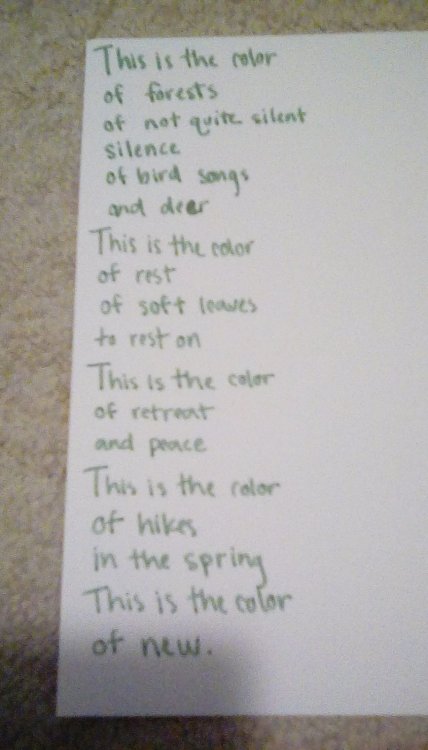 This is the color
of forests
of not quite silent
silence
of bird songs
and deer
This is the color
of rest
of soft leaves
to rest on
This is the color
of retreat
and peace
This is the color
of hikes
in the spring
This is the color
of new.